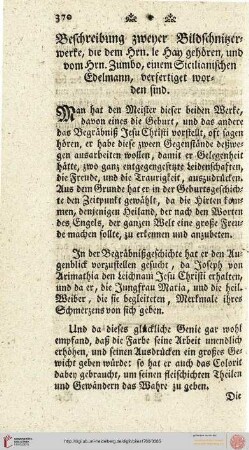 370
Beschreibung zweyer Bildschnitzer-
werke, die dem Hrn. le Hay gehören, und
vom Hrn. Zumbo, einem Sicilianischen
Edelmann, verfertiget wor-
den sind.
Man hat den Meister dieser beiden Werke,
davon eines die Geburt, und das andere
das Begräbniß Jesu Christi vorstellt, oft sagen
hören, er habe diese zween Gegenstände deßwe-
gen ausarbeiten wollen, damit er Gelegenheit
hätte, zwo ganz entgegengesetzte Leidenschaften,
die Freude, und die Traurigkeit, auszudrücken.
Aus dem Grunde hat er in der Geburtsgeschich-
te den Zeitpunkt gewählt, da die Hirten kom-
men, denjenigen Heiland, der nach den Worten
des Engels, der ganzen Welt eine große Freu-
de machen sollte, zu erkennen und anzubeten.
In der Begräbnißgeschichte hat er den Au-
genblick vorzustellen gesucht, da Joseph von
Arimathia den Leichnam Jesu Christi erhalten,
und da er, die Jungfrau Maria, und die heil.
Weiber, die sie begleiteten, Merkmale ihres
Schmerzens von sich geben.
Und da dieses glückliche Genie gar wohl
empfand, daß die Farbe seine Arbeit unendlich
erhöhen, und seinen Ausdrücken ein großes Ge-
wicht geben würde: so hat er auch das Colorit
dabey gebraucht, um seinen fleischichten Theilen
und Gewändern das Wahre zu geben.
Die